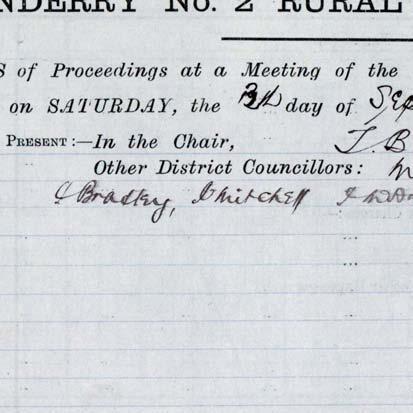 NDERRY No. 2 RURAL
S of Proceedings at a Meeting of the
on SATURDAY, the 3rd day of Sep
PRESENT:—In the Chair, T. B
Other District Councillors: M
Bradley, Mitchell